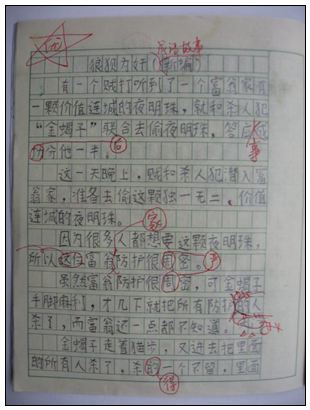 优
成语故事
狼狈为奸(新编)
有一个贼打听到了一个富翁家有
一颗价值连城的夜明珠,就和杀人犯
“金蝎子”联合去偷夜明珠,答应
分他一半。后 事成
这一天晚上,贼和杀人犯潜入富
翁家,准备去偷这颗独一无二、价值
连城的夜明珠。
因为很多人都想要这颗夜明珠,
所以这位富翁防护很周密。
虽然富翁防护很周密,可金蝎子
手脚麻利,才几下就把所有防护的人
杀了,而富翁还一点都不知道。
金蝎子走着猫步,又进去把里面
的所有人杀了,杀的一个不留,里面
得